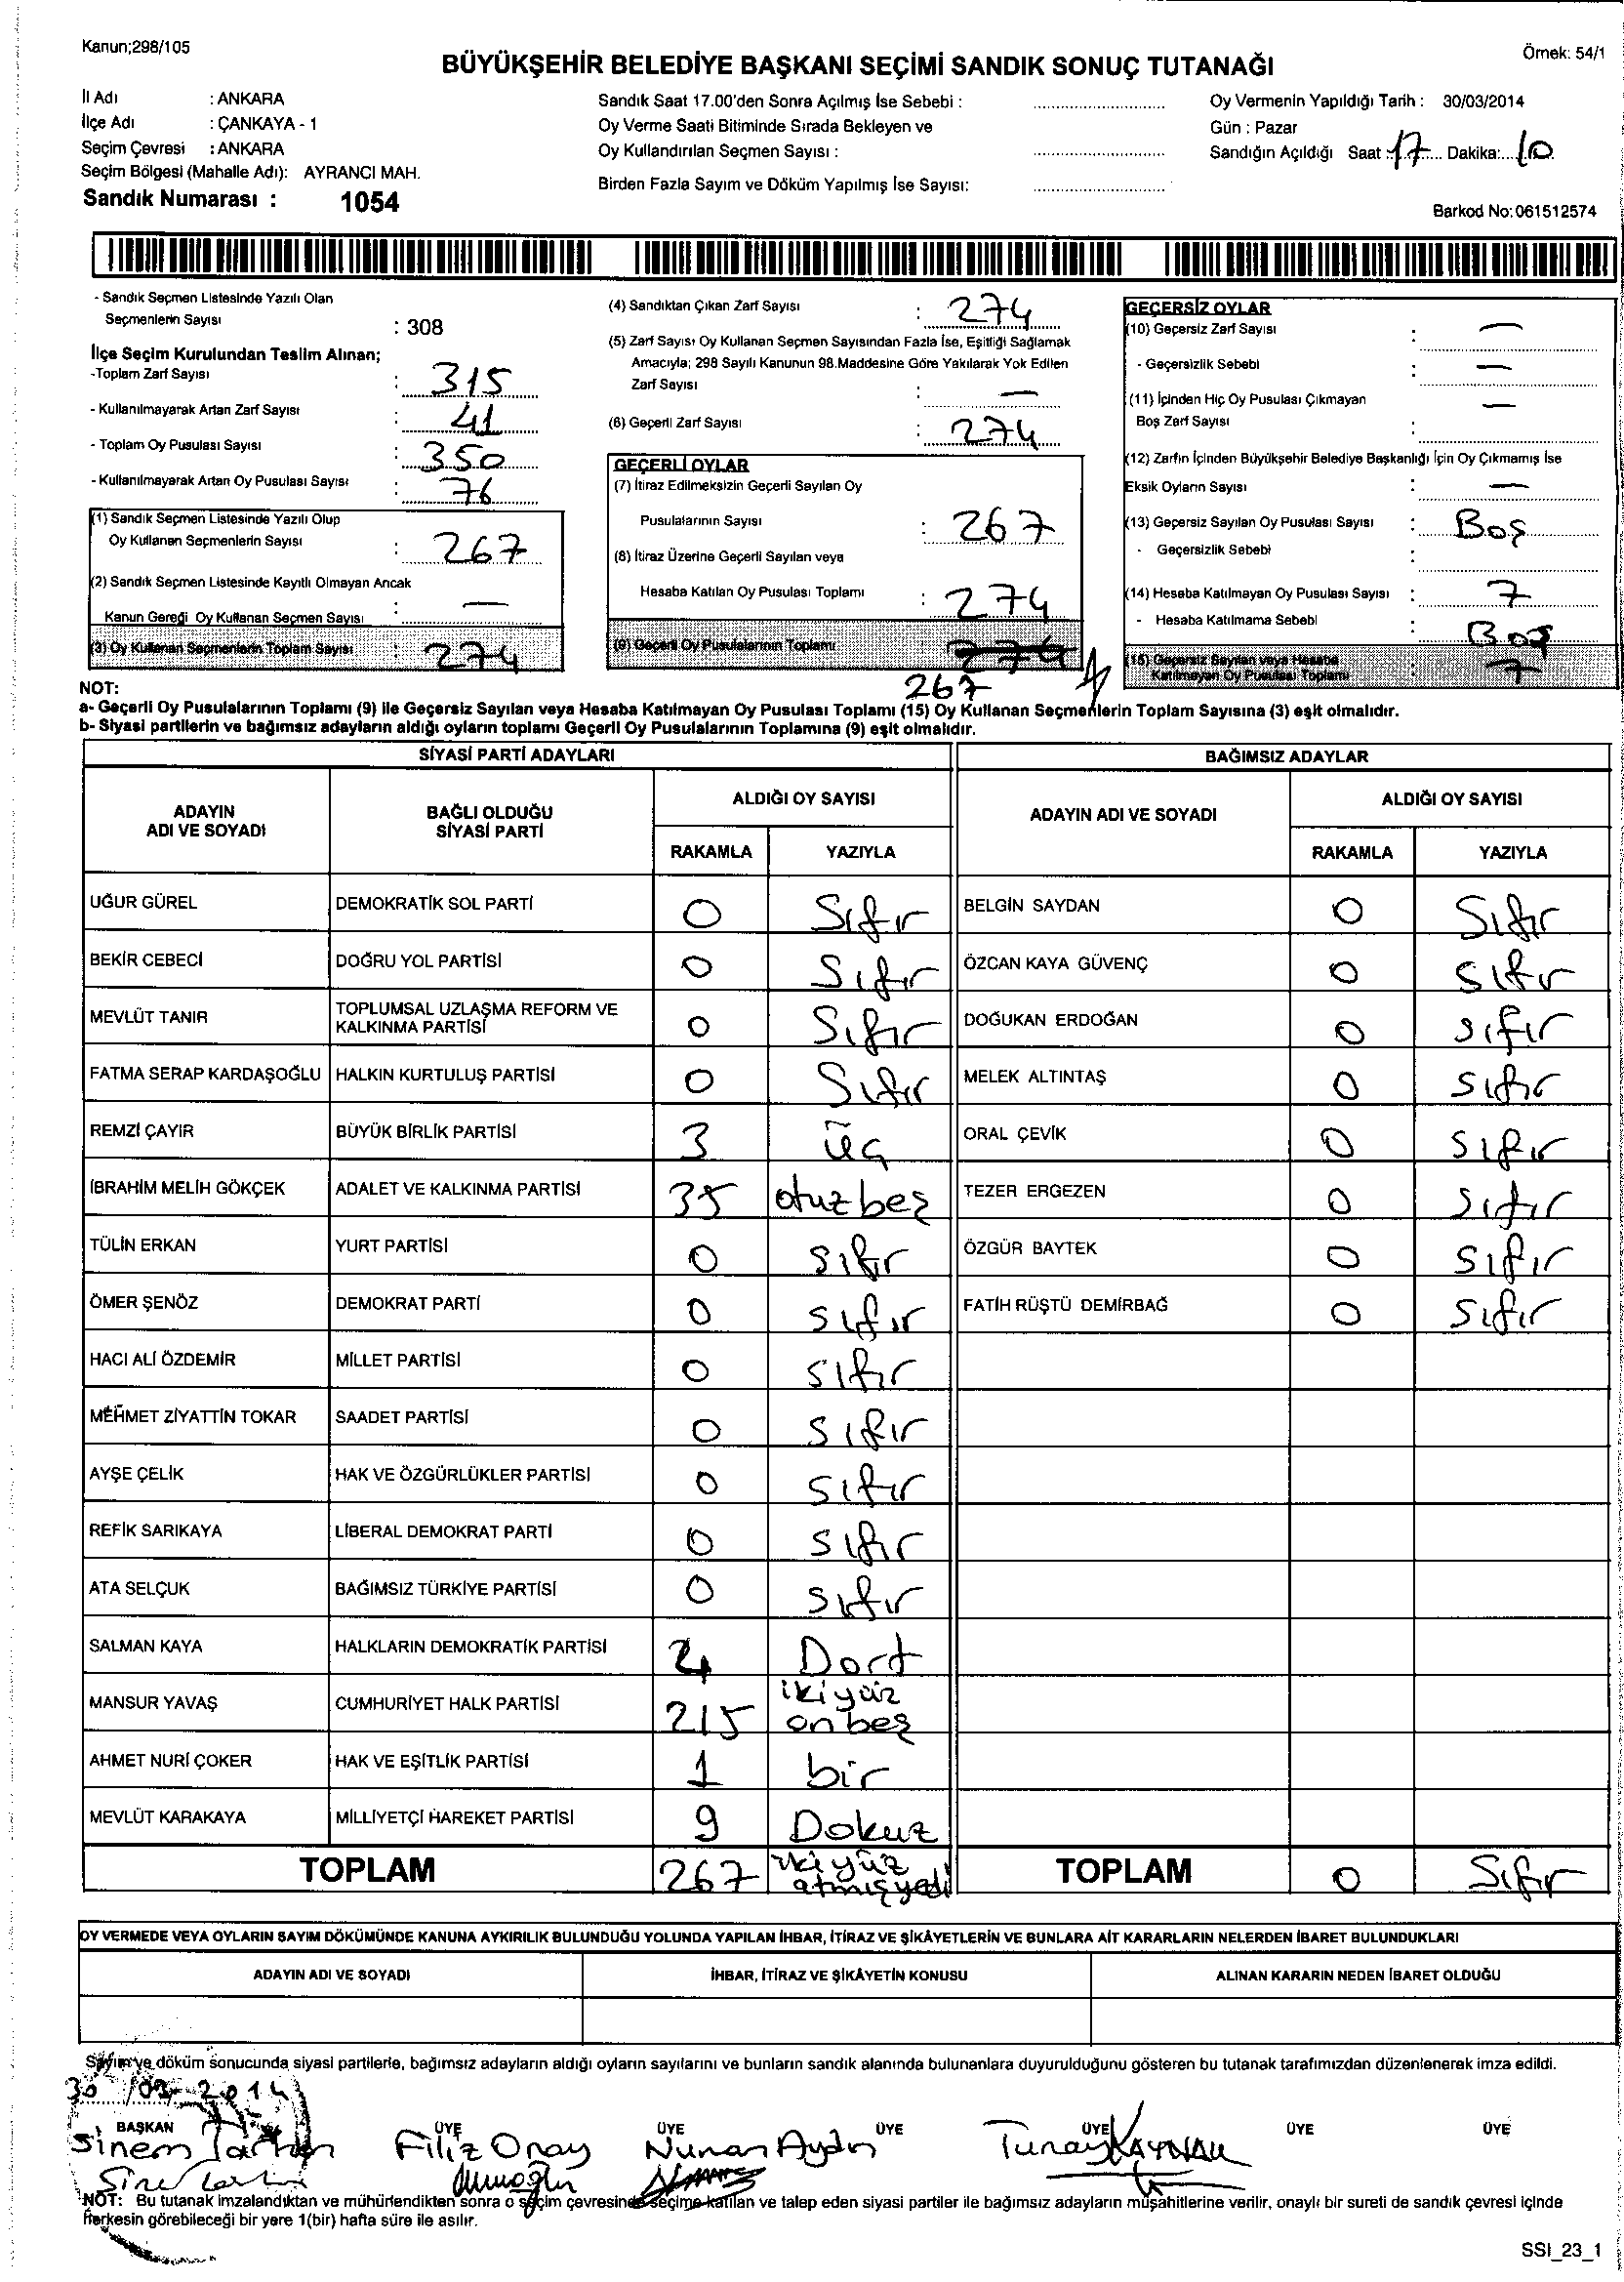 Kanun;298/105
Örnek: 54/1
BÜYÜKŞEHİR BELEDİYE BAŞKANI SEÇİMİ SANDIK SONUÇ TUTANAĞI
İl Adı : ANKARA
İlçe Adı : ÇANKAYA - 1
Seçim Çevresi : ANKARA
Seçim Bölgesi (Mahalle Adı): AYRANCI MAH.
Sandık Numarası : 1054
Sandık Saat 17.00'den Sonra Açılmış İse Sebebi :
Oy Verme Saati Bitiminde Sırada Bekleyen ve
Oy Kullandırılan Seçmen Sayısı :
Birden Fazla Sayım ve Döküm Yapılmış İse Sayısı:
Oy Vermenin Yapıldığı Tarih : 30/03/2014
Gün : Pazar
Sandığın Açıldığı Saat : 17 Dakika: 10
Barkod No: 061512574
- Sandık Seçmen Listesinde Yazılı Olan
Seçmenlerin Sayısı : 308
İlçe Seçim Kurulundan Teslim Alınan;
-Toplam Zarf Sayısı : 315
- Kullanılmayarak Artan Zarf Sayısı : 41
- Toplam Oy Pusulası Sayısı : 350
- Kullanılmayarak Artan Oy Pusulası Sayısı : 76
(1) Sandık Seçmen Listesinde Yazılı Olup
Oy Kullanan Seçmenlerin Sayısı : 267
(2) Sandık Seçmen Listesinde Kayıtlı Olmayan Ancak
Kanun Gereği Oy Kullanan Seçmen Sayısı : —
(3) Oy Kullanan Seçmenlerin Toplam Sayısı : 274
(4) Sandıktan Çıkan Zarf Sayısı : 274
(5) Zarf Sayısı Oy Kullanan Seçmen Sayısından Fazla İse, Eşitliği Sağlamak
Amacıyla; 298 Sayılı Kanunun 98.Maddesine Göre Yakılarak Yok Edilen
Zarf Sayısı : —
(6) Geçerli Zarf Sayısı : 274
GEÇERLİ OYLAR
(7) İtiraz Edilmeksizin Geçerli Sayılan Oy
Pusulalarının Sayısı : 267
(8) İtiraz Üzerine Geçerli Sayılan veya
Hesaba Katılan Oy Pusulası Toplamı : 274
(9) Geçerli Oy Pusulalarının Toplamı : 274
267
GEÇERSİZ OYLAR
(10) Geçersiz Zarf Sayısı : —
- Geçersizlik Sebebi : —
(11) İçinden Hiç Oy Pusulası Çıkmayan —
Boş Zarf Sayısı :
(12) Zarfın İçinden Büyükşehir Belediye Başkanlığı İçin Oy Çıkmamış İse
Eksik Oyların Sayısı : —
(13) Geçersiz Sayılan Oy Pusulası Sayısı : Boş
- Geçersizlik Sebebi :
(14) Hesaba Katılmayan Oy Pusulası Sayısı : 7
- Hesaba Katılmama Sebebi : Boş
(15) Geçersiz Sayılan veya Hesaba
Katılmayan Oy Pusulası Toplamı : 7
NOT:
a- Geçerli Oy Pusulalarının Toplamı (9) ile Geçersiz Sayılan veya Hesaba Katılmayan Oy Pusulası Toplamı (15) Oy Kullanan Seçmenlerin Toplam Sayısına (3) eşit olmalıdır.
b- Siyasi partilerin ve bağımsız adayların aldığı oyların toplamı Geçerli Oy Pusulalarının Toplamına (9) eşit olmalıdır.
SİYASİ PARTİ ADAYLARI
ADAYIN ADI VE SOYADI BAĞLI OLDUĞU SİYASİ PARTİ ALDIĞI OY SAYISI
RAKAMLA YAZIYLA
UĞUR GÜREL DEMOKRATİK SOL PARTİ 0 Sıfır
BEKİR CEBECİ DOĞRU YOL PARTİSİ 0 Sıfır
MEVLÜT TANIR TOPLUMSAL UZLAŞMA REFORM VE KALKINMA PARTİSİ 0 Sıfır
FATMA SERAP KARDAŞOĞLU HALKIN KURTULUŞ PARTİSİ 0 Sıfır
REMZİ ÇAYIR BÜYÜK BİRLİK PARTİSİ 3 üç
İBRAHİM MELİH GÖKÇEK ADALET VE KALKINMA PARTİSİ 35 otuzbeş
TÜLİN ERKAN YURT PARTİSİ 0 sıfır
ÖMER ŞENÖZ DEMOKRAT PARTİ 0 sıfır
HACI ALİ ÖZDEMİR MİLLET PARTİSİ 0 sıfır
MEHMET ZİYATTİN TOKAR SAADET PARTİSİ 0 sıfır
AYŞE ÇELİK HAK VE ÖZGÜRLÜKLER PARTİSİ 0 sıfır
REFİK SARIKAYA LİBERAL DEMOKRAT PARTİ 0 sıfır
ATA SELÇUK BAĞIMSIZ TÜRKİYE PARTİSİ 0 sıfır
SALMAN KAYA HALKLARIN DEMOKRATİK PARTİSİ 4 Dort
MANSUR YAVAŞ CUMHURİYET HALK PARTİSİ 215 ikiyüz onbeş
AHMET NURİ ÇOKER HAK VE EŞİTLİK PARTİSİ 1 bir
MEVLÜT KARAKAYA MİLLİYETÇİ HAREKET PARTİSİ 9 Dokuz
TOPLAM 267 ikiyüz atmışyedi
BAĞIMSIZ ADAYLAR
ADAYIN ADI VE SOYADI ALDIĞI OY SAYISI
RAKAMLA YAZIYLA
BELGİN SAYDAN 0 Sıfır
ÖZCAN KAYA GÜVENÇ 0 sıfır
DOĞUKAN ERDOĞAN 0 sıfır
MELEK ALTINTAŞ 0 sıfır
ORAL ÇEVİK 0 sıfır
TEZER ERGEZEN 0 sıfır
ÖZGÜR BAYTEK 0 sıfır
FATİH RÜŞTÜ DEMİRBAĞ 0 sıfır
TOPLAM 0 Sıfır
OY VERMEDE VEYA OYLARIN SAYIM DÖKÜMÜNDE KANUNA AYKIRILIK BULUNDUĞU YOLUNDA YAPILAN İHBAR, İTİRAZ VE ŞİKÂYETLERİN VE BUNLARA AİT KARARLARIN NELERDEN İBARET BULUNDUKLARI
ADAYIN ADI VE SOYADI İHBAR, İTİRAZ VE ŞİKÂYETİN KONUSU ALINAN KARARIN NEDEN İBARET OLDUĞU
Sayım ve döküm sonucunda siyasi partilerle, bağımsız adayların aldığı oyların sayılarını ve bunların sandık alanında bulunanlara duyurulduğunu gösteren bu tutanak tarafımızdan düzenlenerek imza edildi.
30/03/2014
BAŞKAN ÜYE ÜYE ÜYE ÜYE ÜYE ÜYE
Sinem Filiz Onay Nuran Aydın Tunay KAYNAK
NOT: Bu tutanak imzalandıktan ve mühürlendikten sonra o seçim çevresinde seçime katılan ve talep eden siyasi partiler ile bağımsız adayların müşahitlerine verilir, onaylı bir sureti de sandık çevresi içinde
herkesin görebileceği bir yere 1(bir) hafta süre ile asılır.
SSI_23_1